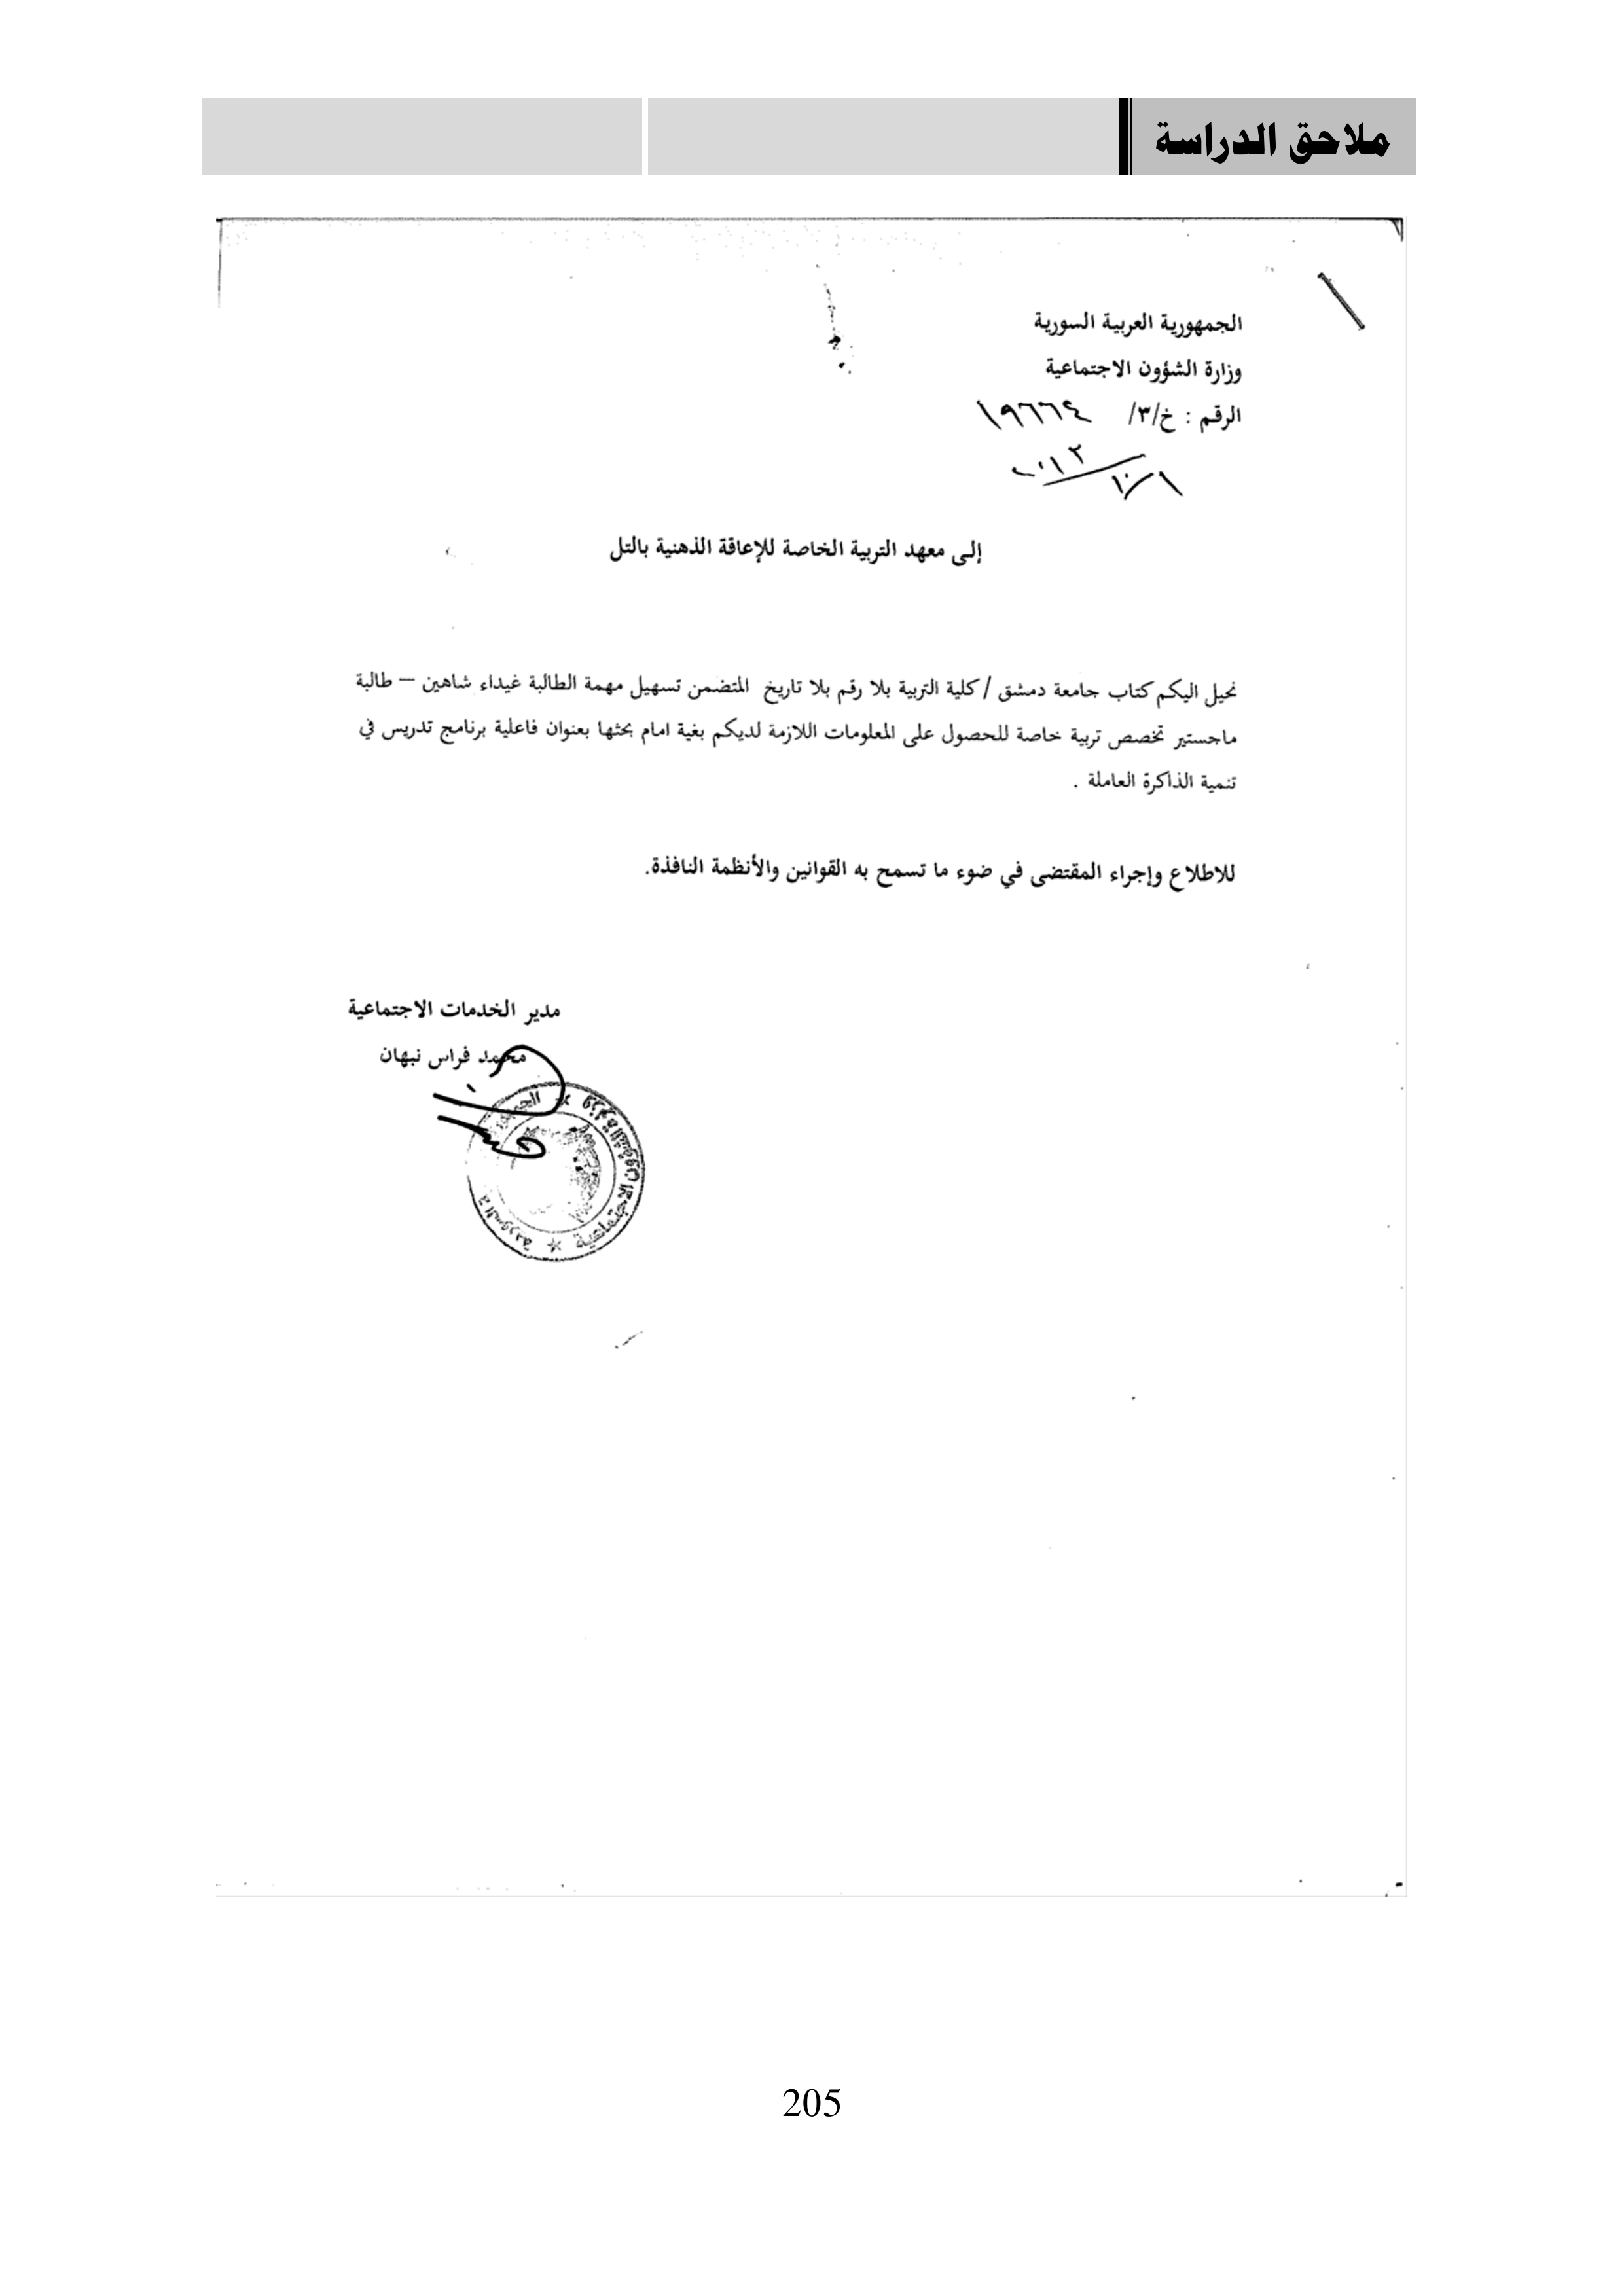 ملاحق الدراسة
الجمهورية العربية السورية
وزارة الشؤون الاجتماعية
الرقم : خ/٣/ ١٩٦٦٤
إلى معهد التربية الخاصة للإعاقة الذهنية بالتل
نحيل اليكم كتاب جامعة دمشق / كلية التربية بلا رقم بلا تاريخ المتضمن تسهيل مهمة الطالبة غيداء شاهين – طالبة
ماجستير تخصص تربية خاصة للحصول على المعلومات اللازمة لديكم بغية امام بحثها بعنوان فاعلية برنامج تدريس في
تنمية الذاكرة العاملة .
للاطلاع وإجراء المقتضى في ضوء ما تسمح به القوانين والأنظمة النافذة.
مدير الخدمات الاجتماعية
محمد فراس نبهان
205